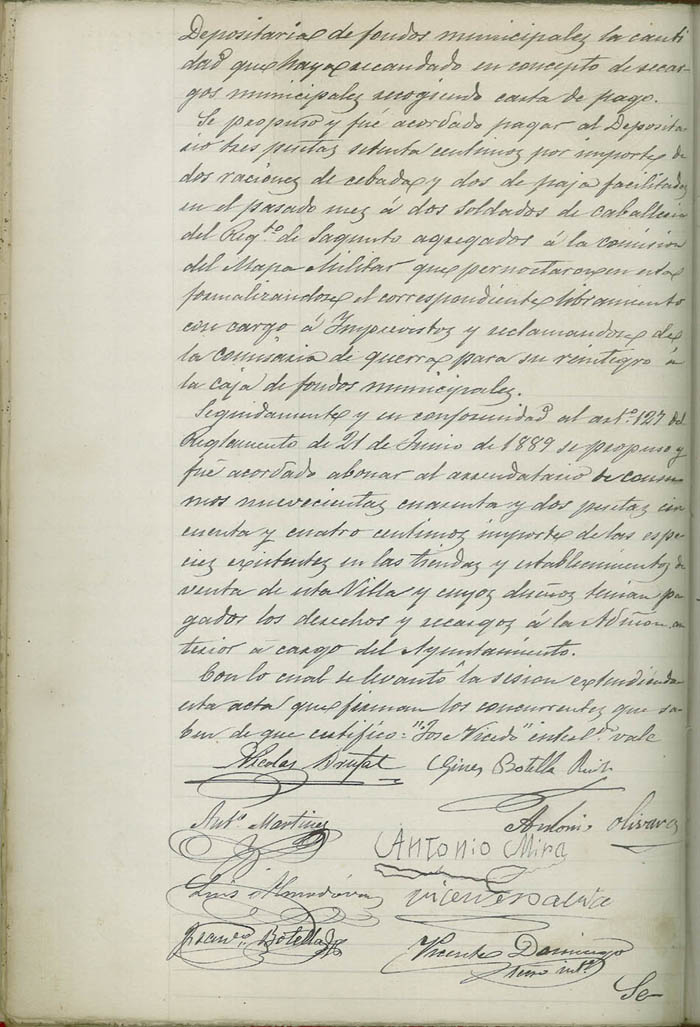 Depositaria de fondos municipales la canti
dad que haya recaudado en concepto de recar-
gos municipales recogiendo carta de pago.
Se propuso y fué acordado pagar al Deposita
rio tres pesetas setenta centimos por importe de
dos raciones de cebada y dos de paja facilitadas
en el pasado mes á dos soldados de caballeria
del Regto. de Sagunto agregados á la comision
del Mapa Militar que pernoctaron en esta
formalizandose el correspondiente libramiento
con cargo á Imprevistos y reclamandose de
la comisaria de guerra para su reintegro á
la caja de fondos municipales.
Seguidamente y en conformidad al arto. 127 del
Reglamento de 21 de Junio de 1889 se propuso y
fué acordado abonar al arrendatario de consu
mos nuevecientas cuarenta y dos pesetas cin
cuenta y cuatro centimos importe de las espe
cies existentes en las tiendas y establecimientos de
venta de esta Villa y cuyos dueños tenian pa
gados los derechos y recargos á la Admon. an
terior á cargo del Ayuntamiento.
Con lo cual se levantó la sesion extendiendo
esta acta que firman los concurrentes que sa-
ben de que certifico = "Jose Vicedo" entrel.do vale
Nicolas Brufal Gines Botella
Anto. Martinez Antonio Olivares
Antonio Mira
Luis Almodóvar
Franco. Botella Vicente Domingo
Secro. into.
Se-